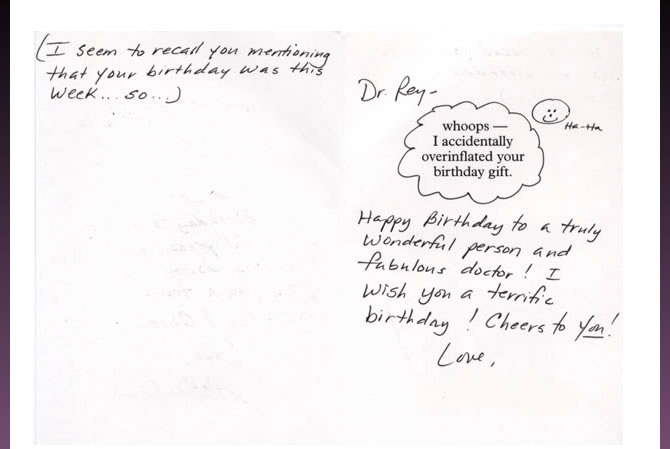 (I seem to recall you mentioning
that your birthday was this
week... so...)
Dr. Rey-
whoops —
I accidentally
overinflated your
birthday gift.
Ha-Ha
Happy Birthday to a truly
wonderful person and
fabulous doctor! I
wish you a terrific
birthday! Cheers to you!
Love,